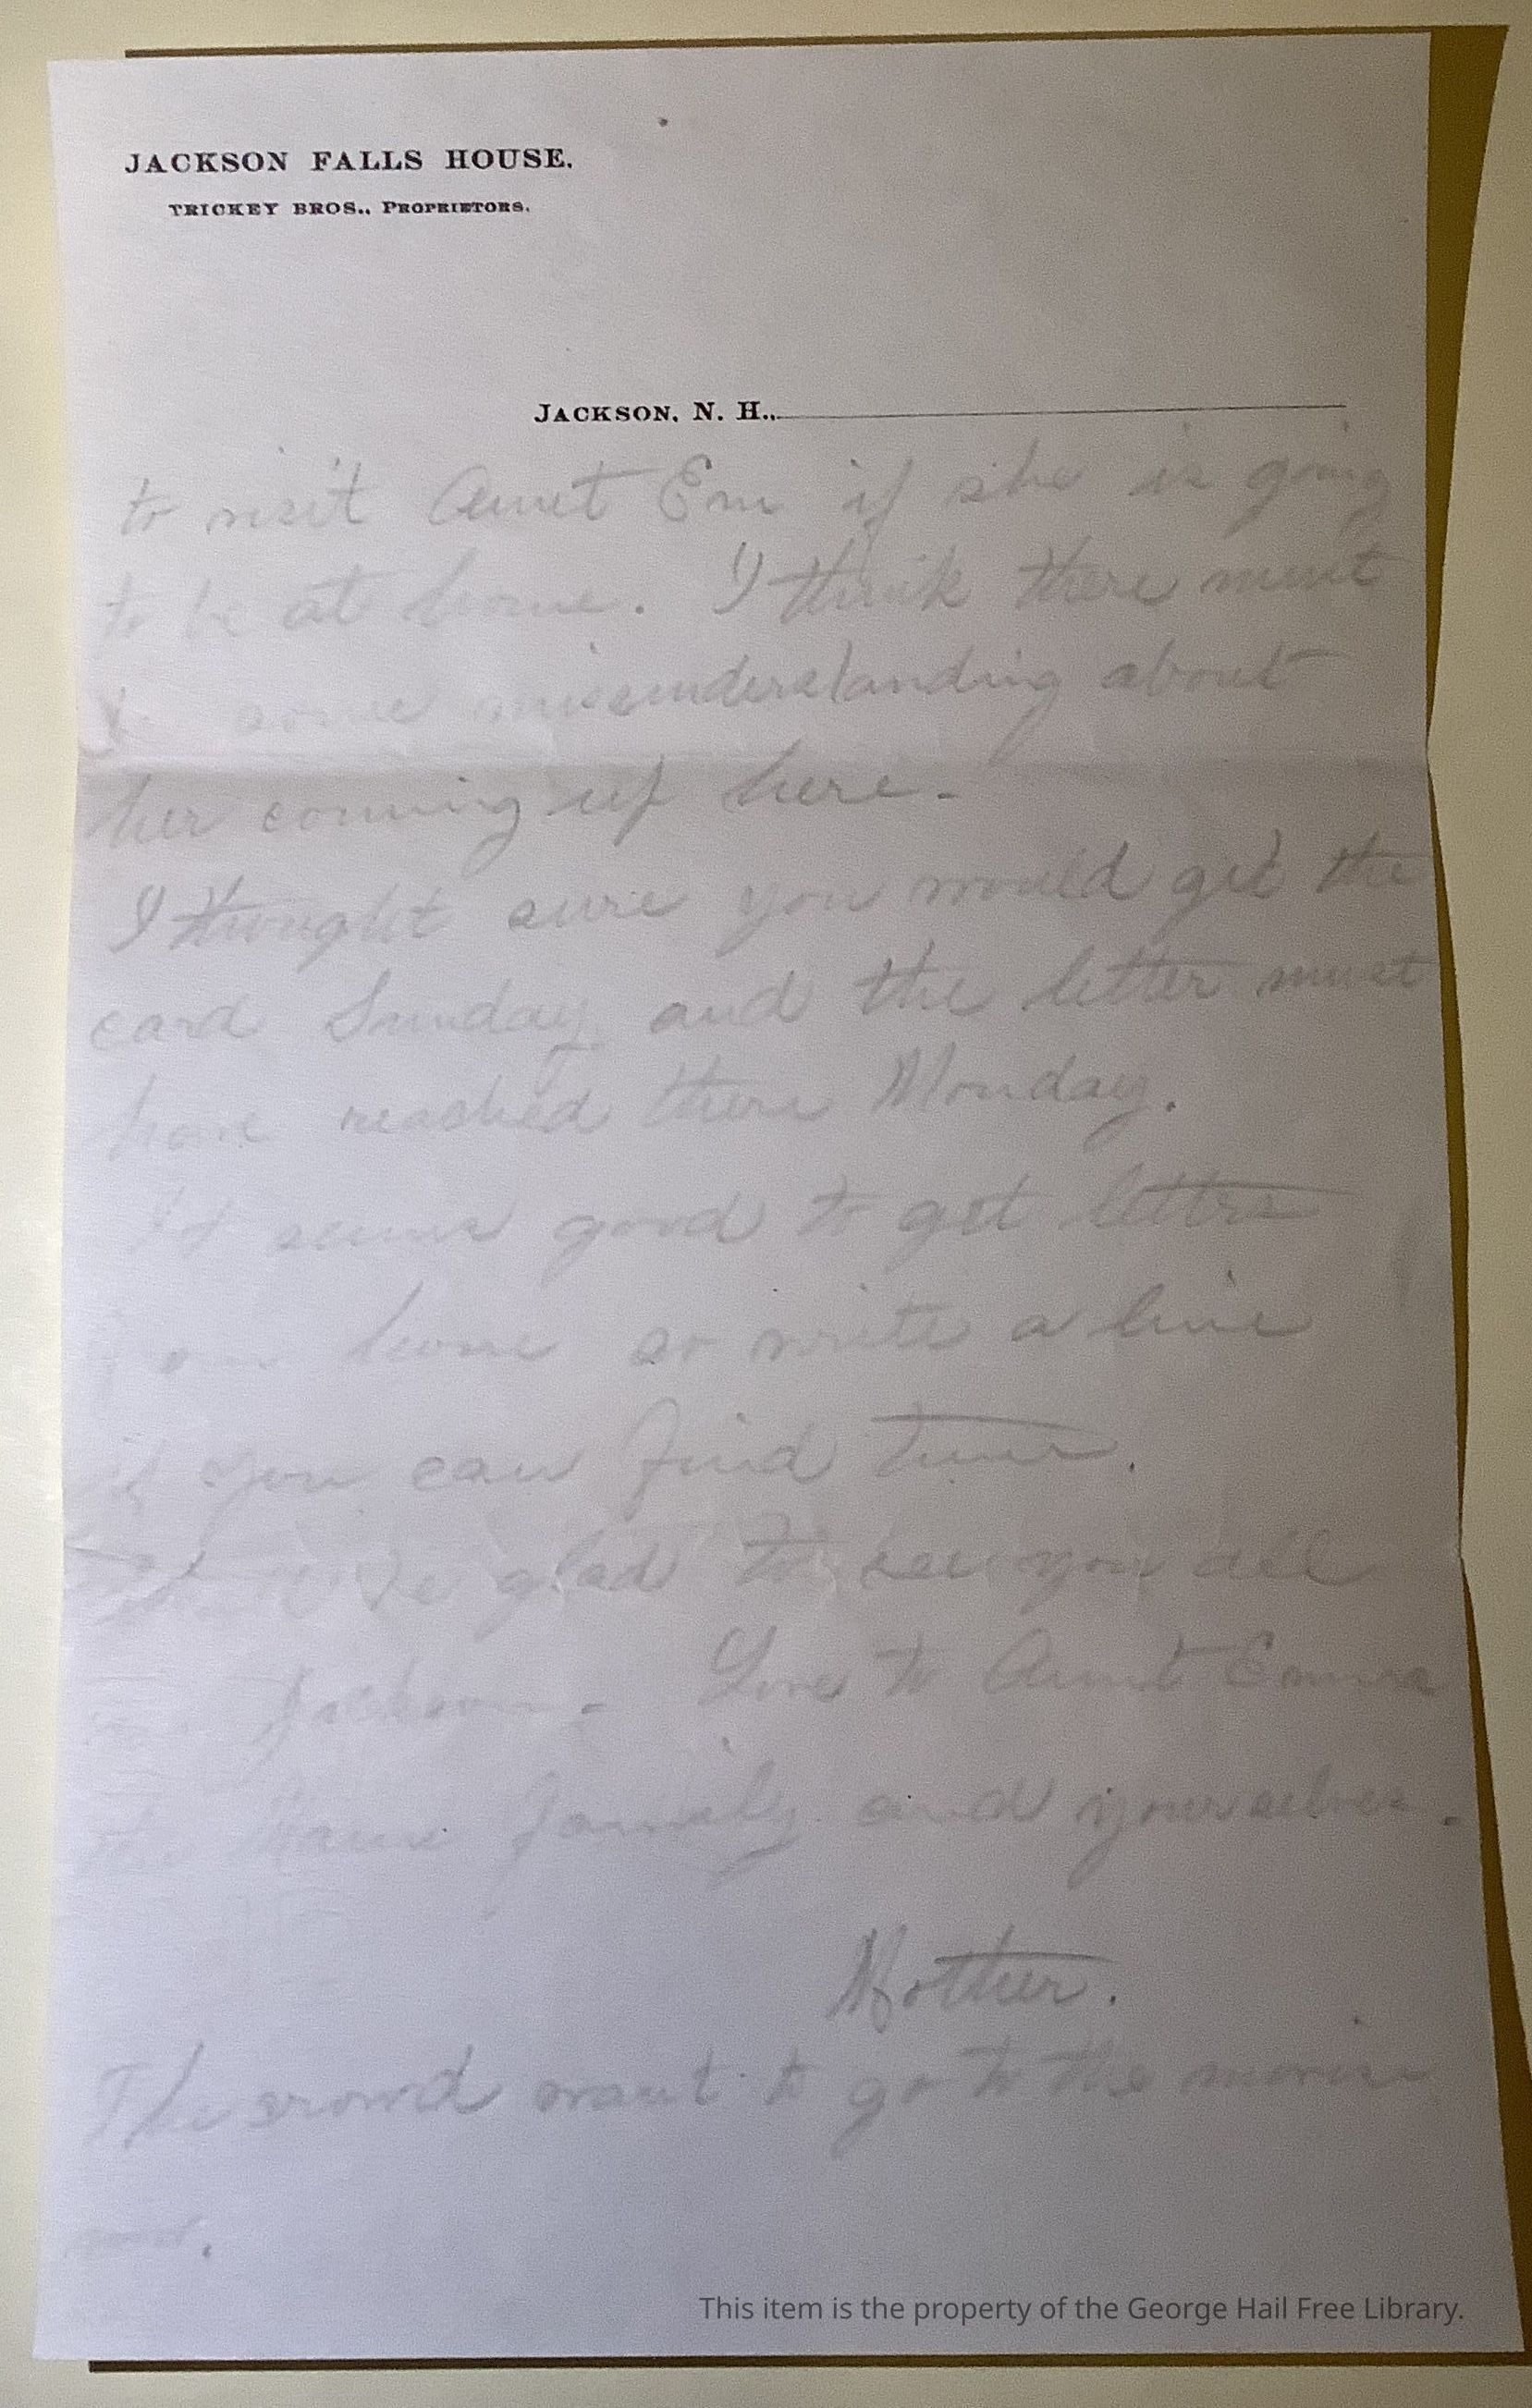 JACKSON FALLS HOUSE.
TRICKEY BROS., PROPRIETORS.
JACKSON, N. H.,
to visit Aunt Em if she is going
to be at home. I think there must
be some misunderstanding about
her coming up here.
I thought sure you would get the
card Sunday and the letter must
have reached there Monday.
It seems good to get letters
from home so write a line
if you can find time.
be glad to see you all
in Jackson. Love to Aunt Emma
the family and yourselves.
Mother.
The crowd want to go to the movies
now.
This item is the property of the George Hail Free Library.